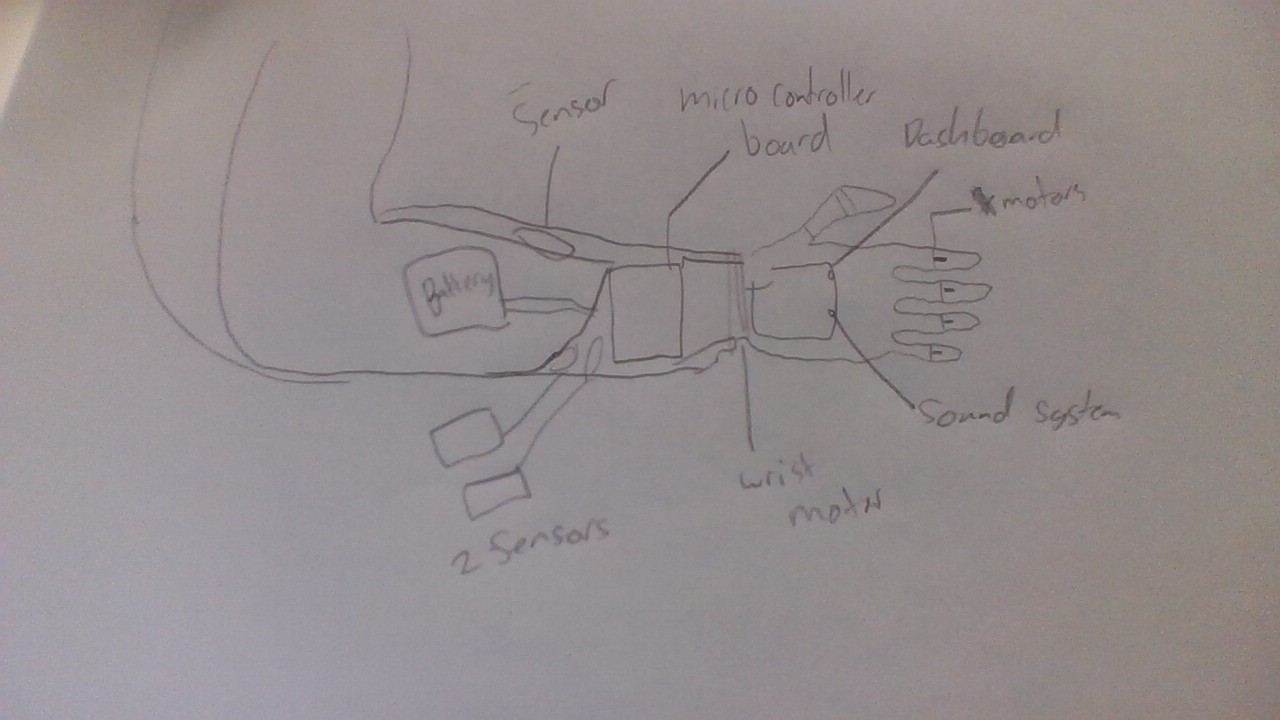 Sensor
micro controller
board
Dashboard
motors
Battery
Sound system
wrist
motor
2 Sensors